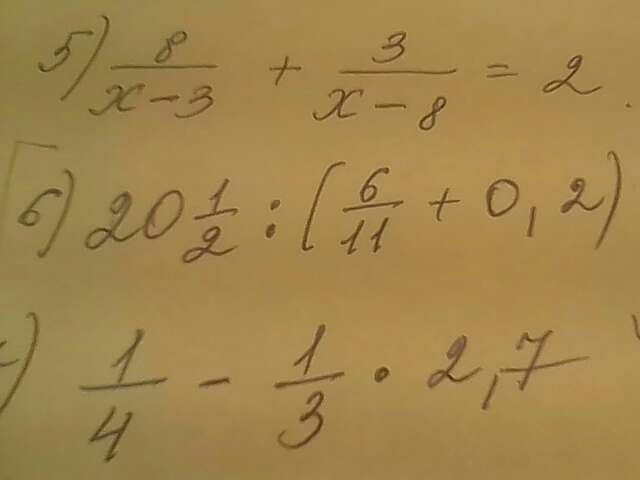 5) 8/(x-3) + 3/(x-8) = 2
6) 20 1/2 : (6/11 + 0,2)
) 1/4 - 1/3 · 2,7